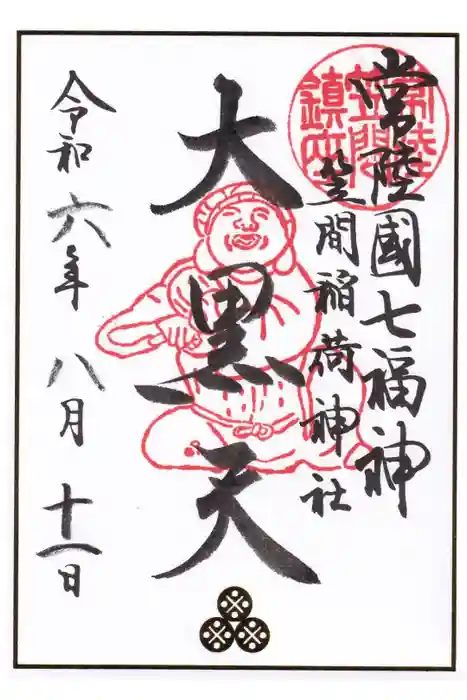 常陸國七福神
笠間稲荷神社
常陸
笠間
鎮座
大黒天
令和六年八月十一日